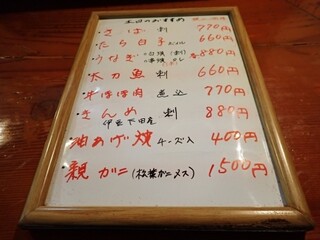 本日のおすすめ
・さば 刺 770円
・たら白子 ポン酢 660円
・うなぎ ・白焼(刺) 各880円
・太刀魚 刺 660円
・牛ほほ肉 煮込 770円
・きんめ 刺 880円
伊豆下田産
・油あげ焼 チーズ入 400円
・親ガニ(松葉ガニメス) 1500円